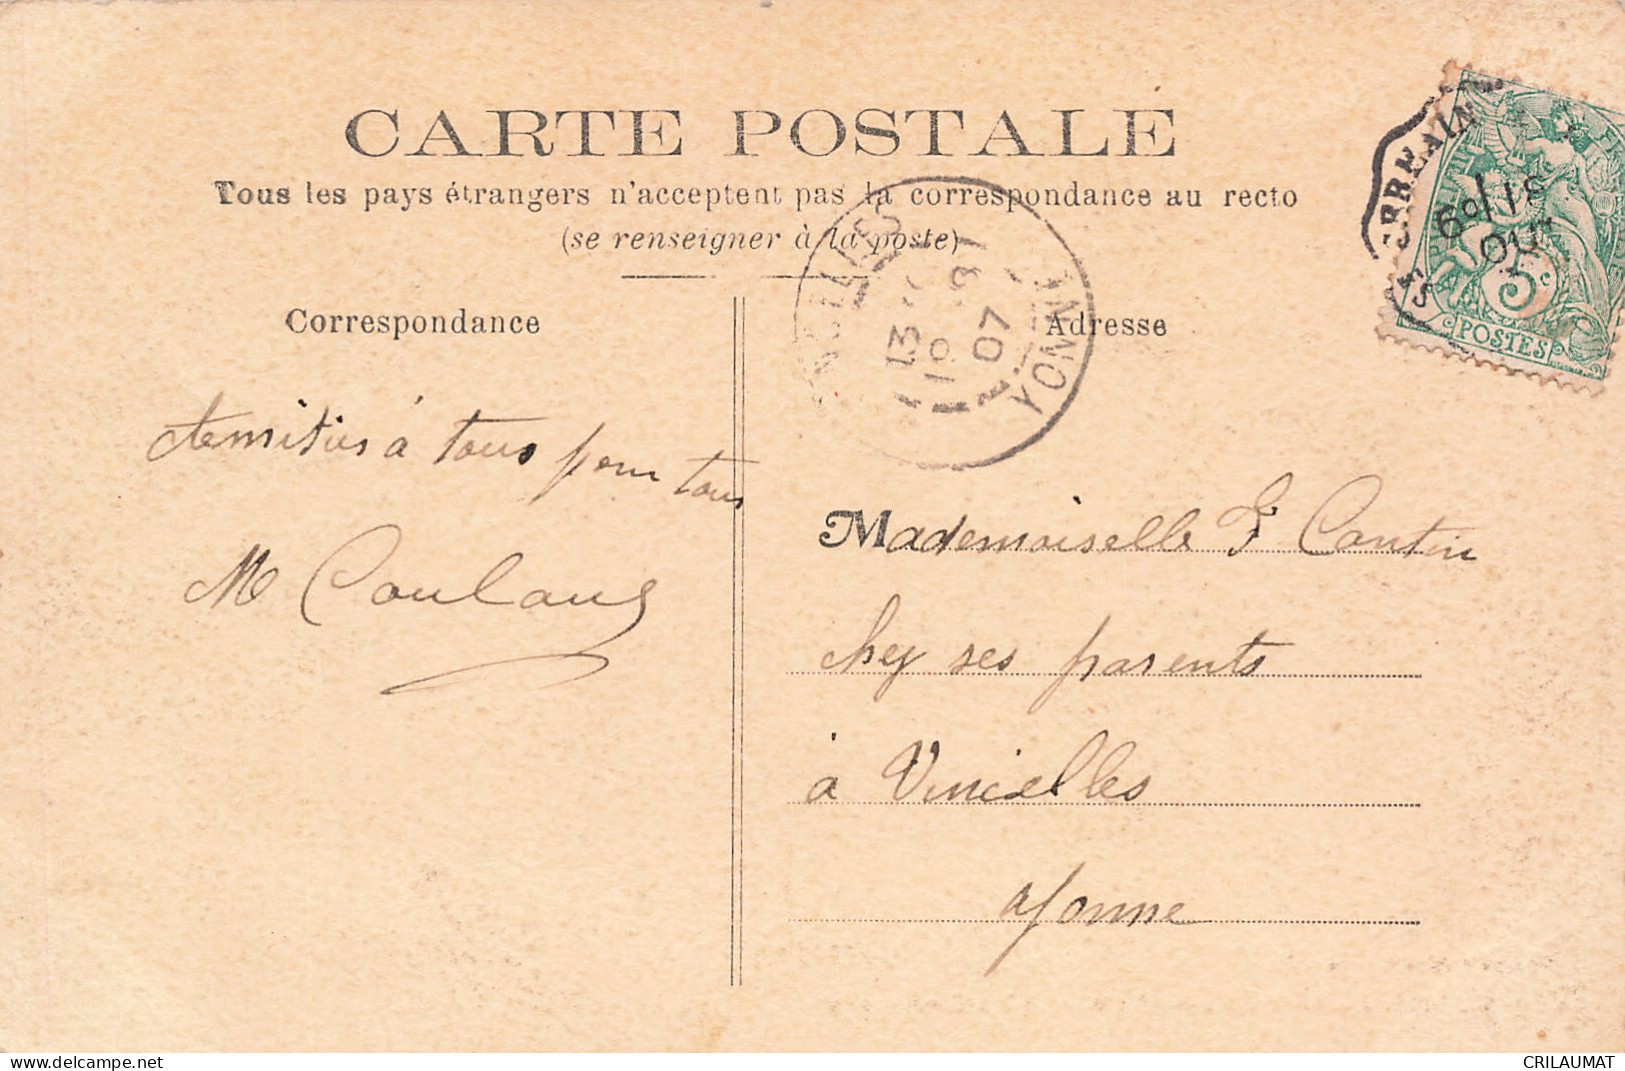 CARTE POSTALE
Tous les pays étrangers n'acceptent pas la correspondance au recto
(se renseigner à la poste)
Correspondance
Adresse
à tous pour tous
M Coulaud
Mademoiselle F Cantin
chez ses parents
à Vincelles
Yonne
13
10 8
07
YONNE
5c
POSTES
delcampe.net
CRILAUMAT